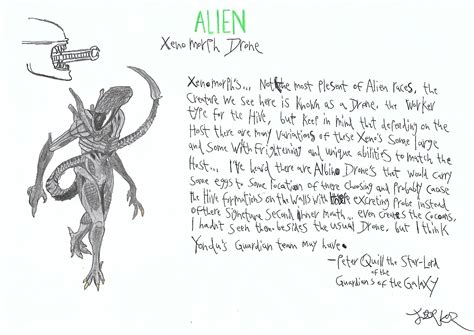 ALIEN
Xenomorph Drone
Xenomorph's... Not the most plesent of Alien races, the
Creature we see here is known as a Drone, the worker
type for the Hive, but keep in mind that depending on the
Host there are many variations of these Xeno's some large
and some with frightening and unique abilities to match the
Host... I've heard there are Albino Drone's that would carry
some eggs to some location of there choosing and probably cause
the Hive formations on the walls with excreting probe instead
of there signature second inner mouth... even creates the cocoons,
I hadn't seen them besides the usual Drone, but I think
Yondu's Guardian team may have.
-Peter Quill the Star-Lord
of the
Guardians of the Galaxy